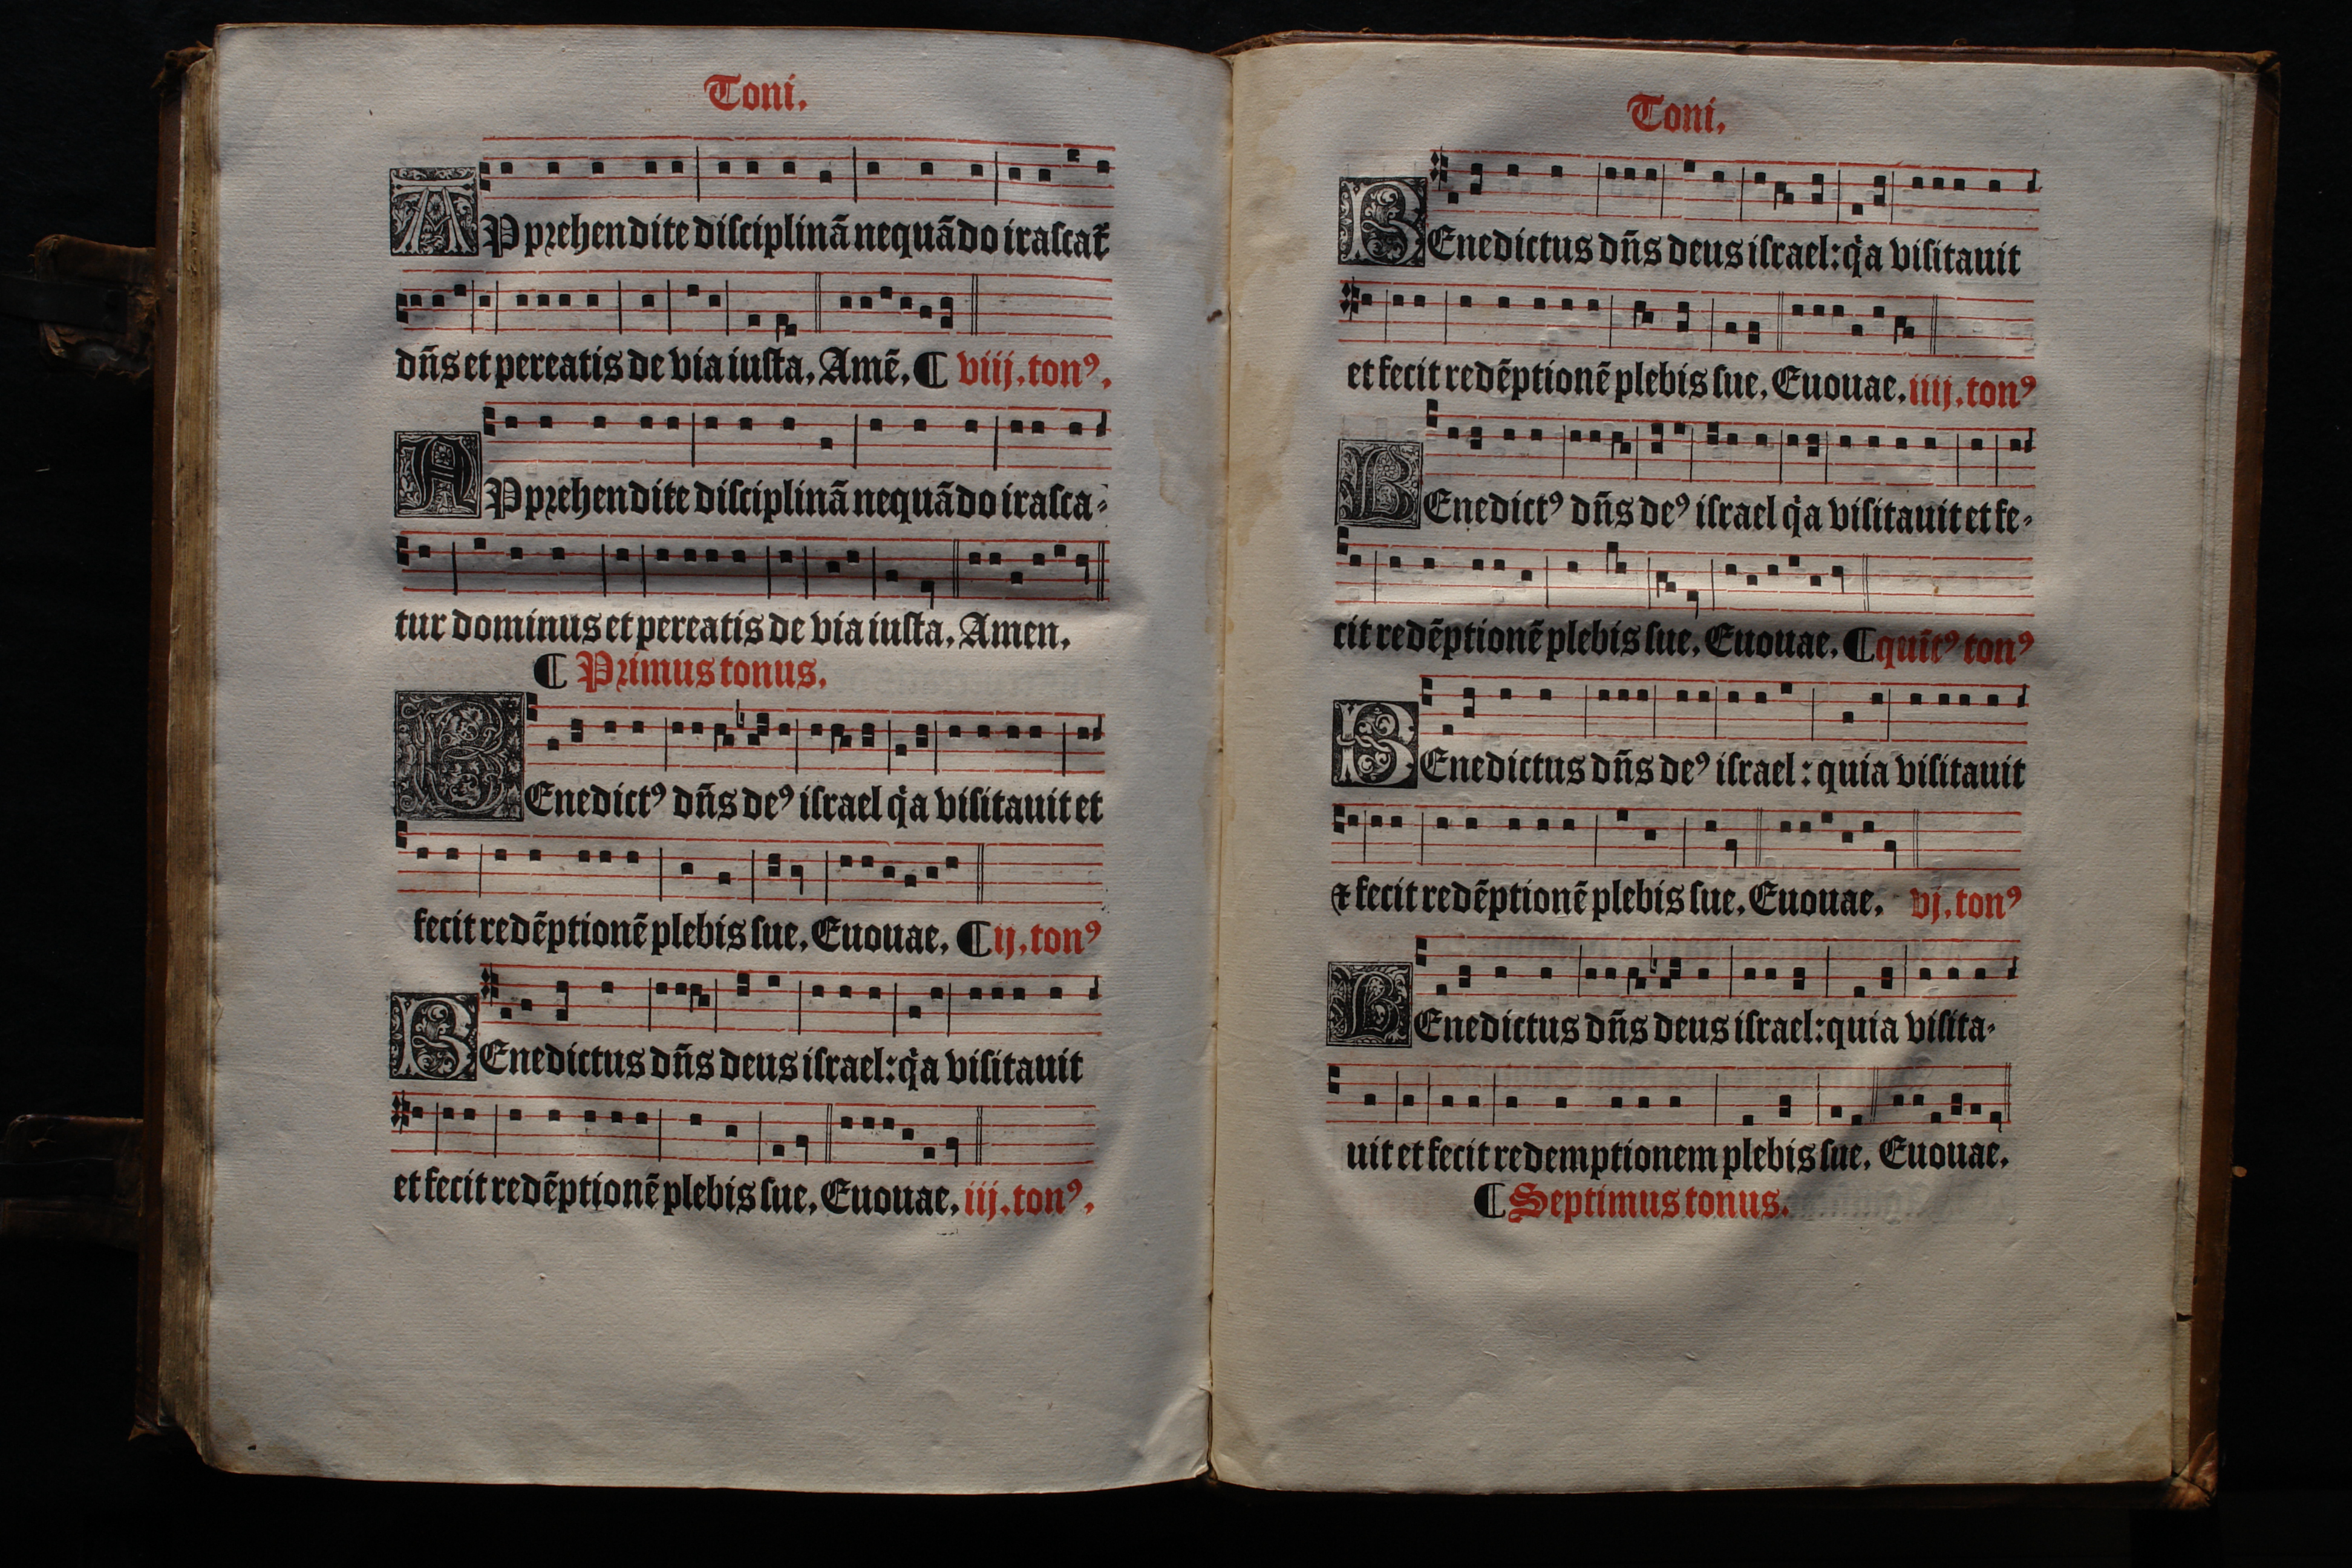 Toni.
APprehendite disciplinā nequādo irascat᷑
dn̄s et pereatis de via iusta. Amē. ¶ viij. tonꝰ.
APprehendite disciplinā nequādo irasca-
tur dominus et pereatis de via iusta. Amen.
¶ Primus tonus.
BEnedictꝰ dn̄s deꝰ israel qͥa visitauit et
fecit redēptionē plebis sue. Euouae. ¶ ij. tonꝰ
BEnedictus dn̄s deus israel: qͥa visitauit
et fecit redēptionē plebis sue. Euouae. iij. tonꝰ.
Toni.
BEnedictus dn̄s deus israel: qͥa visitauit
et fecit redēptionē plebis sue. Euouae. iiij. tonꝰ
BEnedictꝰ dn̄s deꝰ israel qͥa visitauit et fe-
cit redēptionē plebis sue. Euouae. ¶ quīt̄ꝰ tonꝰ
BEnedictus dn̄s deꝰ israel: quia visitauit
⁊ fecit redēptionē plebis sue. Euouae. vj. tonꝰ
BEnedictus dn̄s deus israel: quia visita-
uit et fecit redemptionem plebis sue. Euouae.
¶ Septimus tonus.